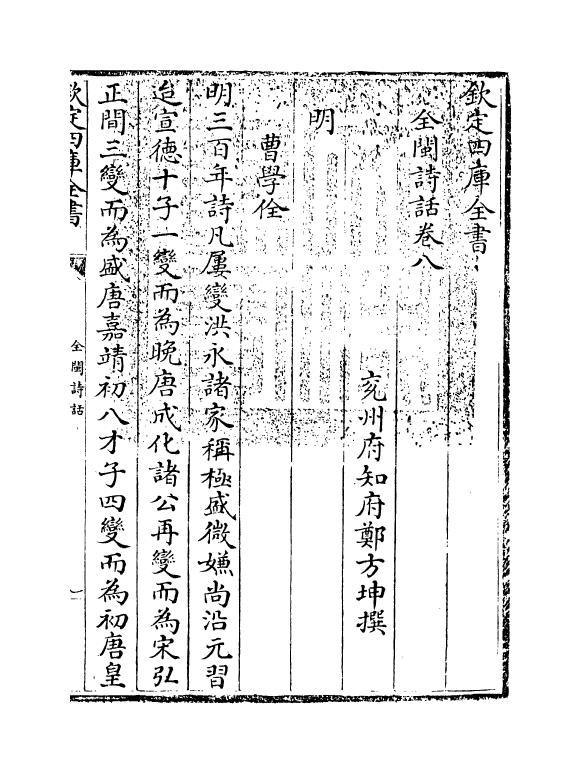 欽定四庫全書
全閩詩話卷八
兗州府知府鄭方坤撰
明
曹學佺
明三百年詩凡屢變洪永諸家稱極盛微嫌尚沿元習
迨宣德十子一變而為晚唐成化諸公再變而為宋弘
正間三變而為盛唐嘉靖初八才子四變而為初唐皇
欽定四庫全書
全閩詩話
一